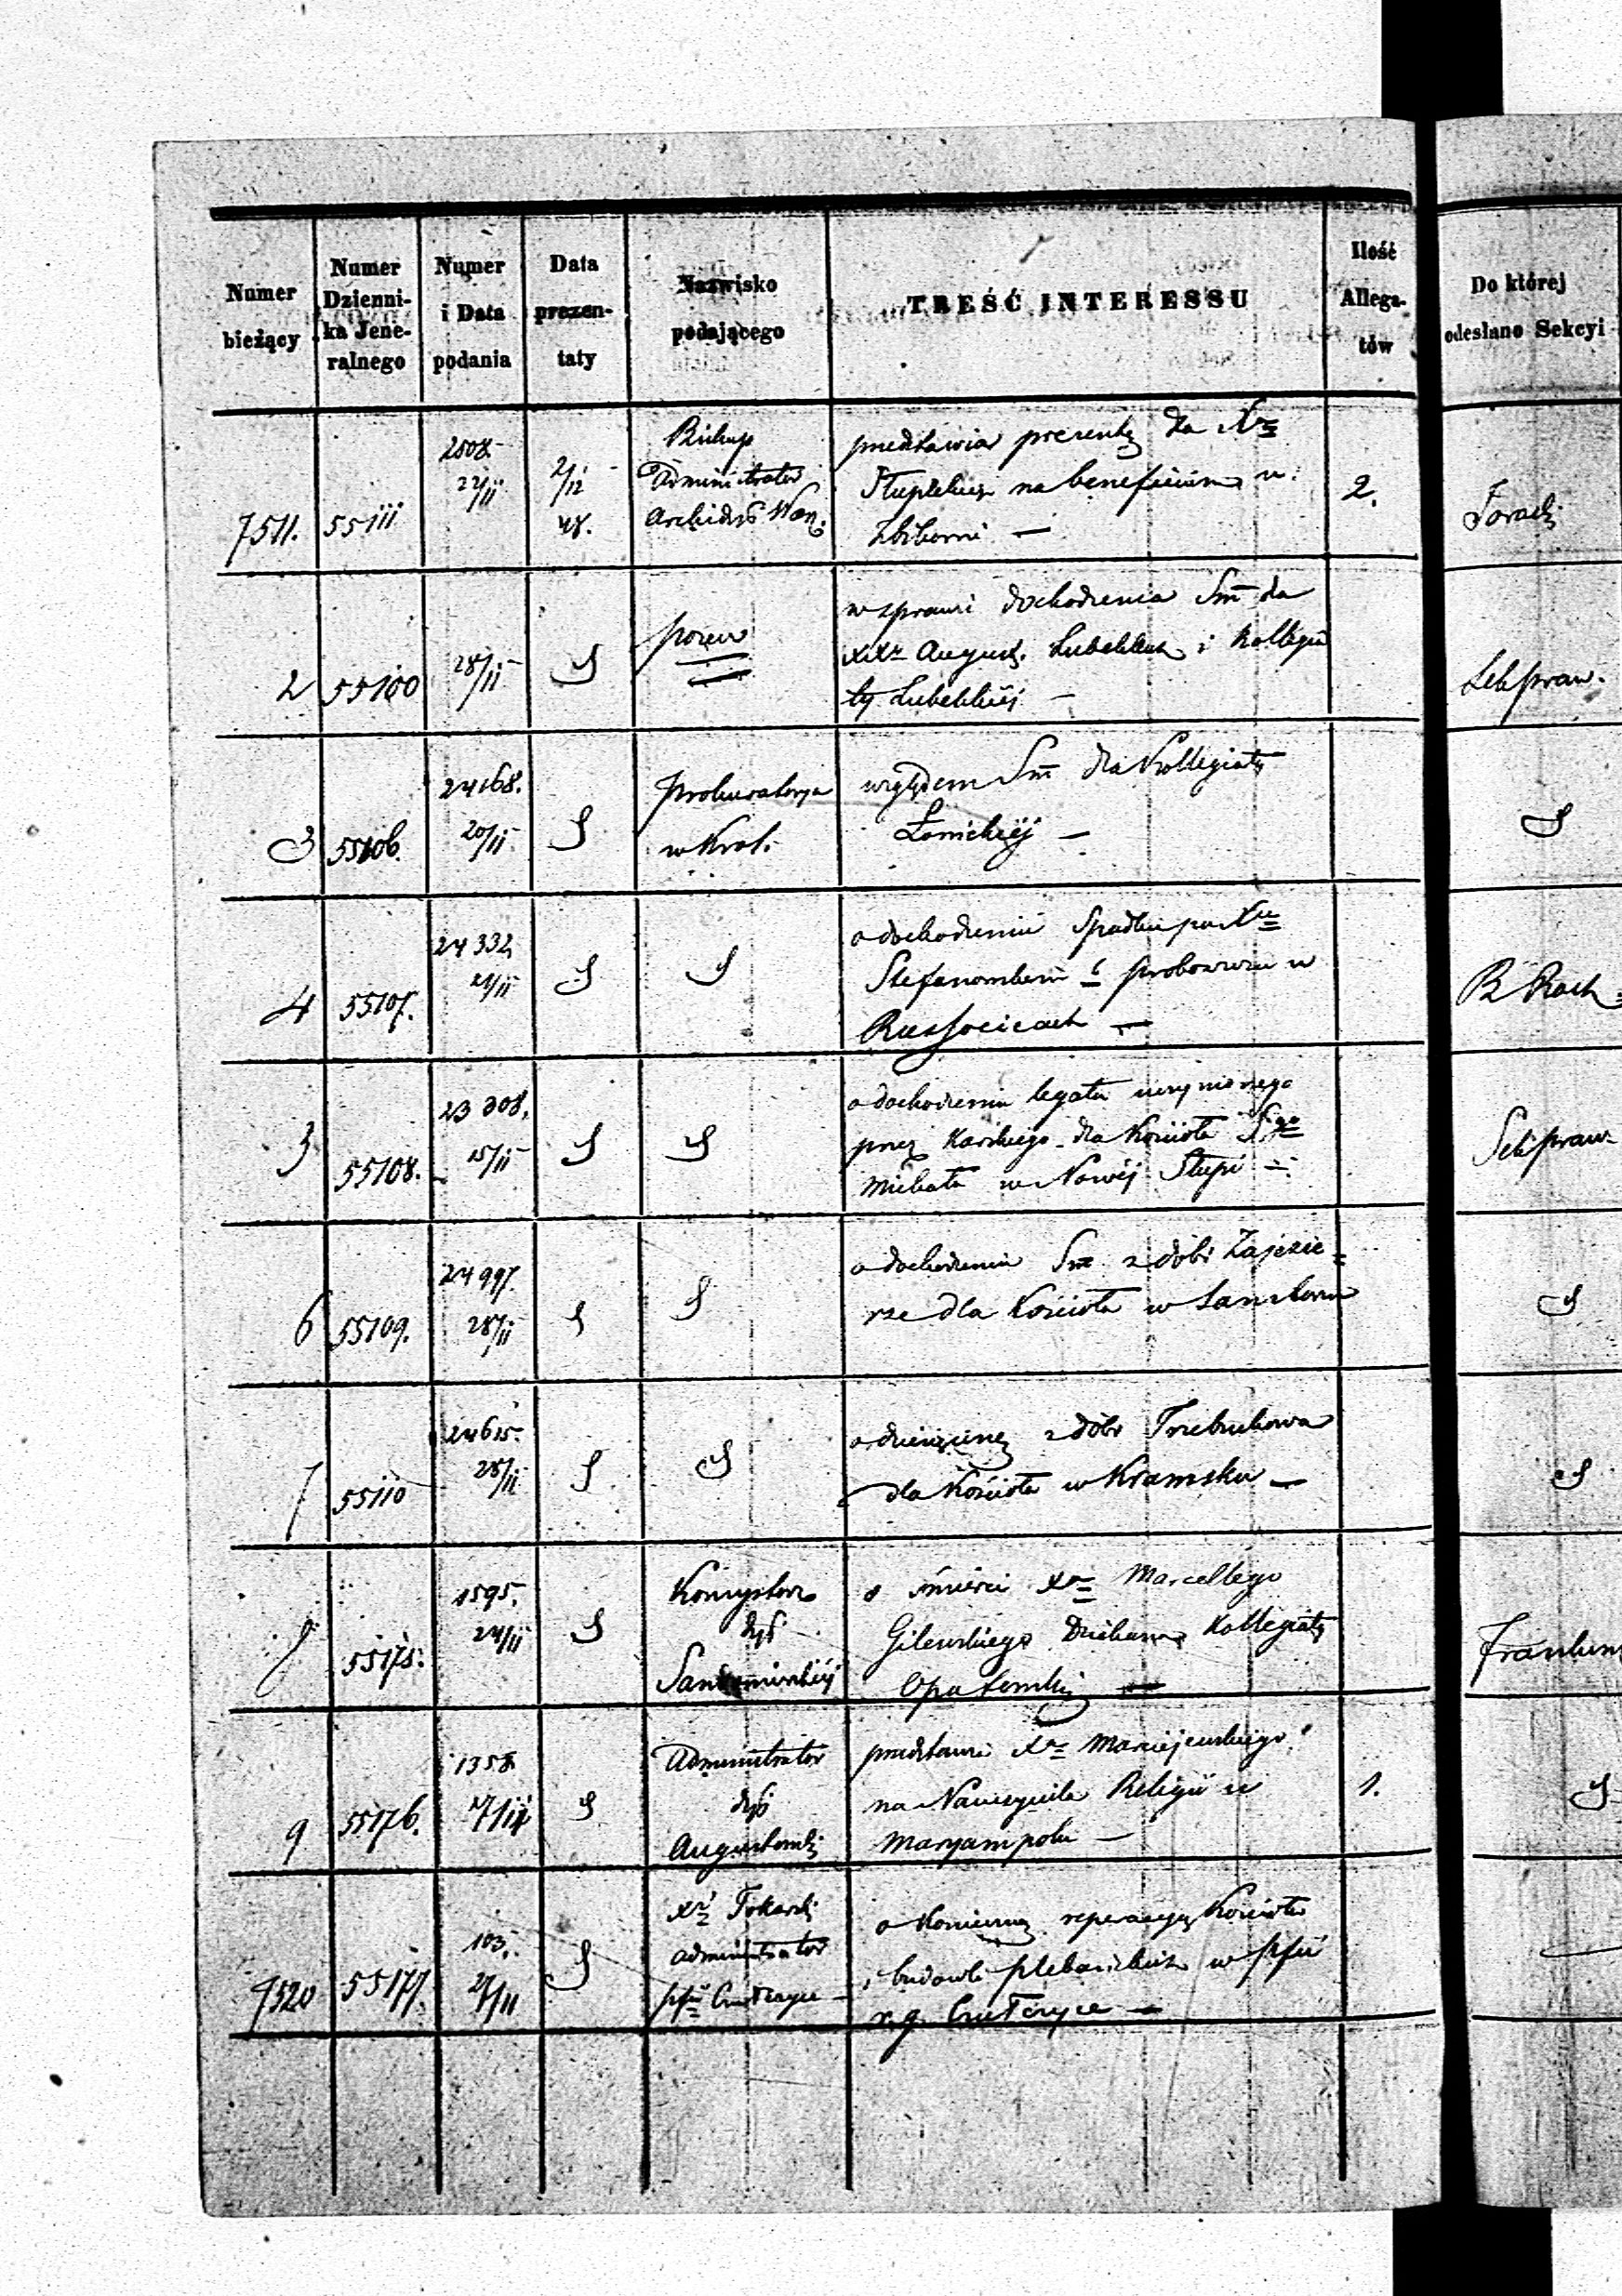 Numer bieżący
Numer Dzienni- ka Jene- ralnego
Numer i Data podania
Data prezen- taty
Nazwisko podającego
TREŚĆ INTERESSU
Ilość Allega- tów
Do której odesłano Sekcyi
7511. 55111 2508. 22/11 2/12 48.
Biskup
Administrator
Archidyś War.
przedstawia prezentę dla Xa
na beneficium w
2.
2 55100 28/11
w sprawie dochodzenia Sm̄ dla
XXz August. Lubelskich i Kollegia
ty Lubelskiéj —
Sekpraw.
3 55106. 24168. 20/11
Prokuratorya
w Krol.
względem Sm̄ dla Kollegiaty
Łowickiéj —
4 55107. 24 332, 21/11
o dochodzeniu Spadku po Xu
proboszczu w
Russocicach —
5 55108. 23 308, 15/11
o dochodzeniu legatu uczynionego
przez Karskiego dla Kościoła Sgo
Michała w Nowéj Słupi —
Sekpraw
6 55109. 24 997. 28/11
o dochodzeniu Sm̄ z dóbr Zajezie-
rze dla Kościoła w
7 55110 24615. 28/11
o dziesięcinę z dóbr Trzebuchowa
dla Kościoła w Kramsku —
8 55175. 1595. 24/11
Konsystorz
dyś
Sandomirskiéj
o śmierci Xa Marcellego
Gilewskiego Dziekana Kollegiaty
Opatowskiej —
9 55176. 1358. 17/11
Administrator
dyś
Augustowskiej
przedstawia Xa Maciejewskiego
na Nauczyciela Religii w
Maryampolu —
1.
7520 55177. 103. 27/11
Xdz Tokarski
administrator
o konieczną reperacyę Kościoła
i budowli plebańskich w